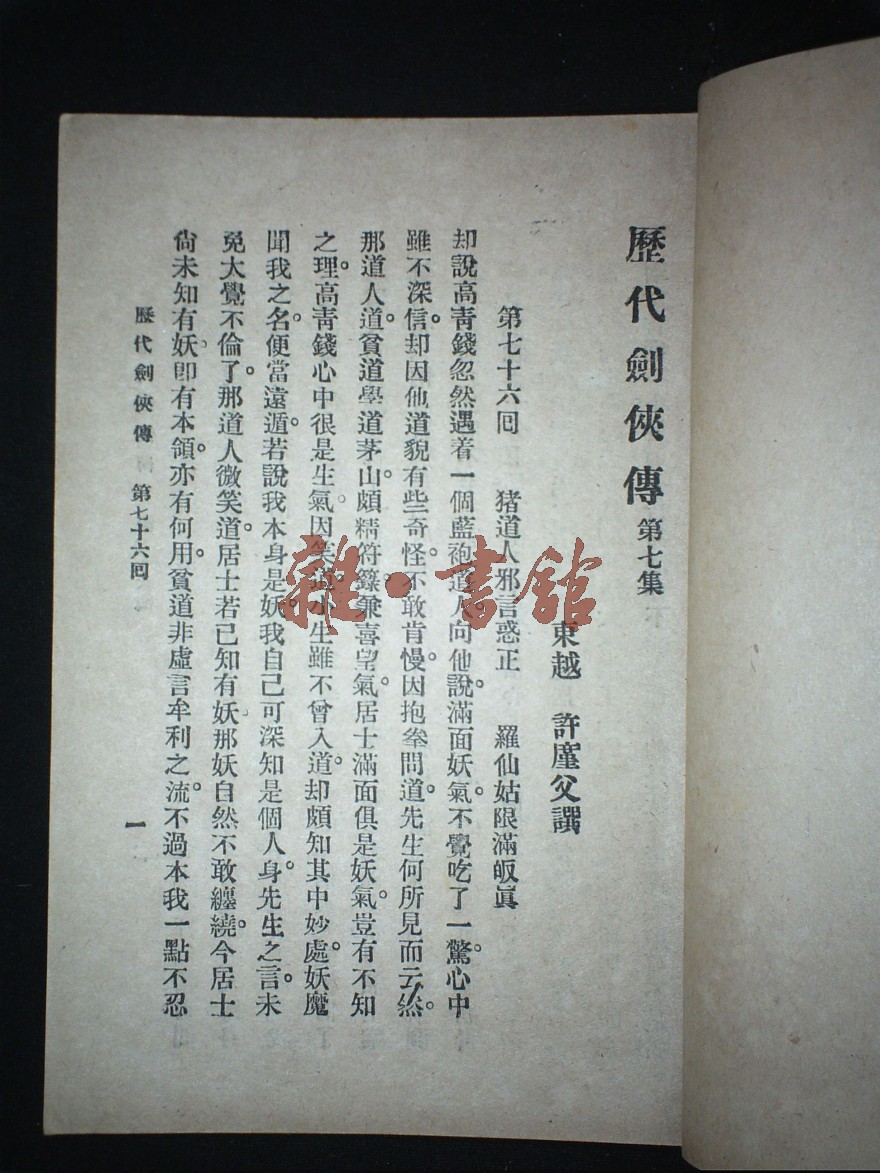 歷代劍俠傳 第七集
東越 許廑父譔
第七十六回 猪道人邪言惑正 羅仙姑限滿皈眞
却說高靑錢忽然遇着一個藍袍道人。向他說。滿面妖氣。不覺吃了一驚。心中
雖不深信。却因他道貌有些奇怪。不敢肯慢。因抱拳問道。先生何所見而云然。
那道人道。貧道學道茅山。頗精符籙。兼喜望氣。居士滿面俱是妖氣。豈有不知
之理。高靑錢心中很是生氣。因笑道。小生雖不曾入道。却頗知其中妙處。妖魔
聞我之名。便當遠遁。若說我本身是妖。我自己可深知是個人身。先生之言。未
免大覺不倫了。那道人微笑道。居士若已知有妖。那妖自然不敢纏繞。今居士
尙未知有妖。卽有本領。亦有何用。貧道非虛言牟利之流。不過本我一點不忍
歷代劍俠傳 第七十六回
一
雜·書館